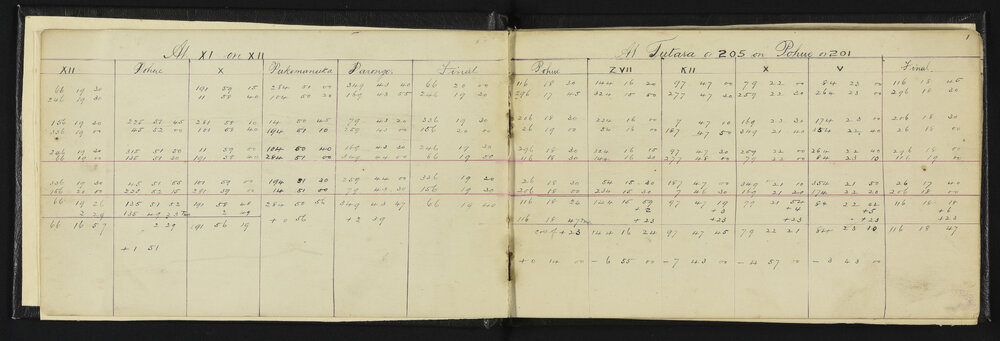 At XI on XII
XII Pohue X Pukemanuka Parongo Final
66 19 30 191 59 15 284 51 00 349 43 40 66 20 00
246 19 30 11 58 40 104 50 20 169 43 55 246 19 30
156 19 30 225 51 45 281 59 10 14 50 45 79 43 20 156 19 30
336 19 30 45 52 00 101 58 40 194 51 10 259 43 00 156 20 00
246 19 30 315 51 50 11 59 00 104 50 40 169 43 30 246 19 30
66 19 00 135 51 30 191 58 40 284 51 00 349 44 00 66 19 50
336 19 30 45 51 55 101 59 00 194 51 20 259 44 00 336 19 30
156 20 00 225 52 15 281 59 00 14 51 00 79 43 30 156 19 30
66 19 26 135 51 52 191 58 48 284 50 56 349 43 47 66 19 40
2 29 135 49 23 2 29 + 0 56 + 2 39
66 16 57 2 29 191 56 19
+ 1 51
1
At Tutara or 205 on Pohue or 201
Pohue ZVII XII X V Final
116 18 30 144 16 20 97 47 00 79 22 00 84 23 00 116 18 45
296 17 45 324 15 50 277 47 20 259 22 00 264 23 00 296 18 30
206 18 30 234 16 00 7 47 10 169 22 20 174 23 00 206 18 30
26 19 00 54 16 00 187 47 00 349 21 40 354 22 40 26 18 00
296 18 30 324 16 15 277 47 30 259 22 00 264 22 40 296 18 00
116 18 30 144 16 20 277 48 00 79 22 00 84 23 10 116 19 00
26 18 30 54 15 30 187 47 00 349 21 10 354 21 50 26 17 40
206 18 00 234 15 30 7 46 30 169 21 20 174 22 20 206 18 00
116 18 24 144 15 59 97 47 19 79 21 54 84 22 42 116 18 18
+2 +3 +4 +5 +6
116 18 47 +23 +23 +23 +23 +23
corr +23 144 16 24 97 47 45 79 22 21 84 23 10 116 18 47
+0 14 00 -6 55 00 -7 43 00 -4 57 00 -3 43 00